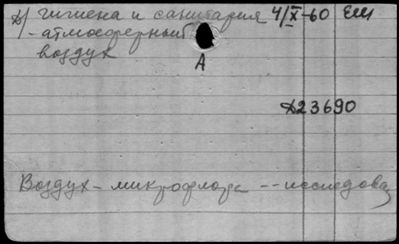 Д) гигиена и санитария 4/X-60 Еш
- атмосферный
воздух
А
Д23690
Воздух - микрофлора -- исследова